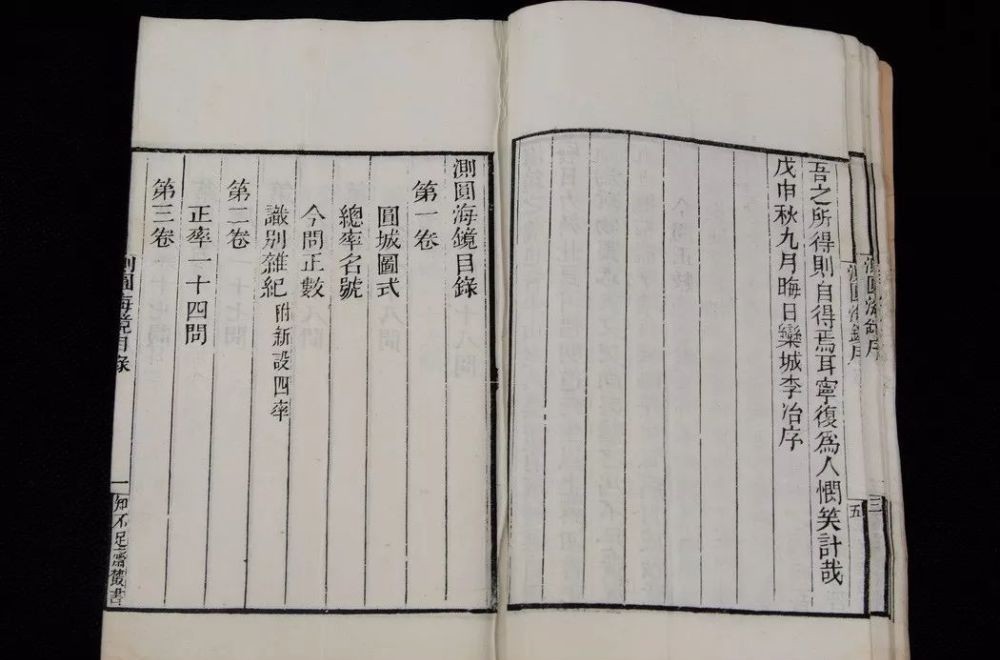 測圓海鏡序
三
測圓海鏡序
五
吾之所得則自得焉耳寧復爲人憫笑計哉
戊申秋九月晦日欒城李冶序
測圓海鏡目錄
第一卷
圓城圖式
總率名號
今問正數
識別雜紀附新設四率
第二卷
正率一十四問
第三卷
測圓海鏡目錄
一
知不足齋叢書